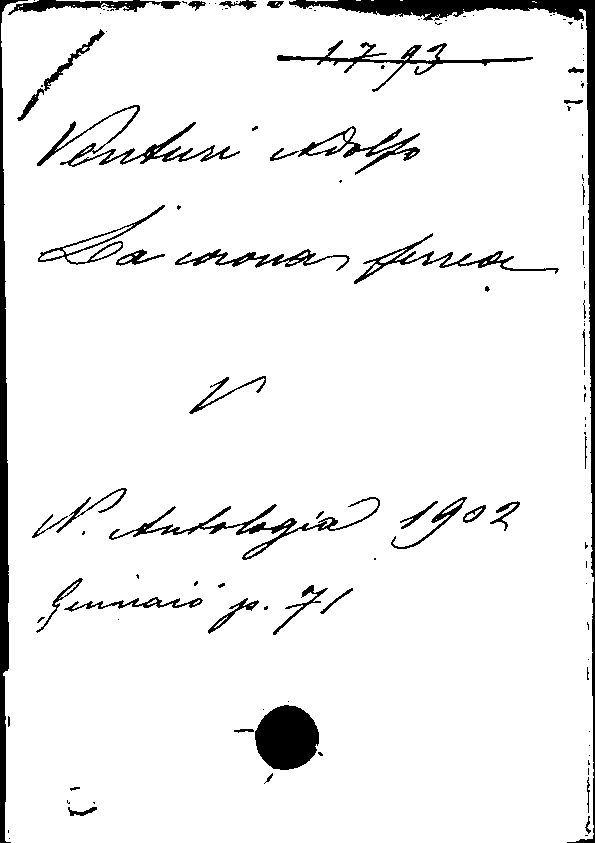 1.7.93
Venturi Adolfo
La corona ferrea
V
N. Antologia 1902
Gennaio p. 71